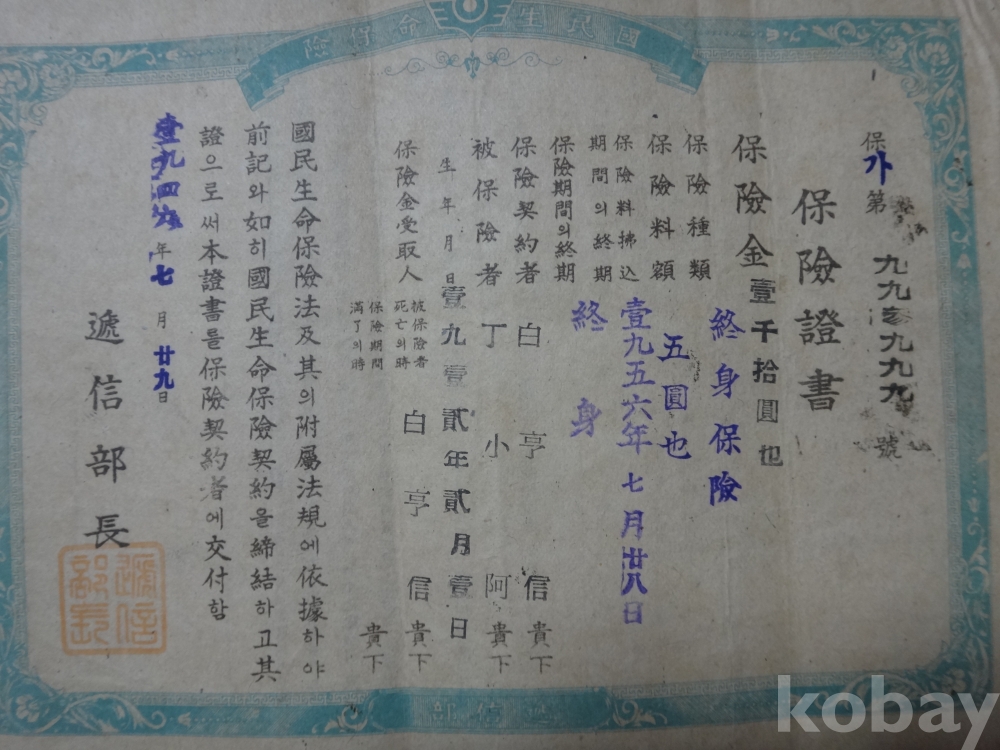 國民生命保險
保가第九九九九九號
保險證書
保險金壹千拾圓也
保險種類 終身保險
保險料額 五圓也
保險料拂込期間의終期 壹九五六年七月廿八日
保險期間의終期 終身
保險契約者 白亨信貴下
被保險者 丁小阿貴下
生年月日 壹九壹貳年貳月壹日
保險金受取人
被保險者死亡의時 白亨信貴下
保險期間滿了의時 貴下
國民生命保險法及其의附屬法規에依據하야
前記와如히國民生命保險契約을締結하고其
證으로써本證書를保險契約者에交付함
壹九四六年七月廿九日
遞信部長
遞信部
kobay